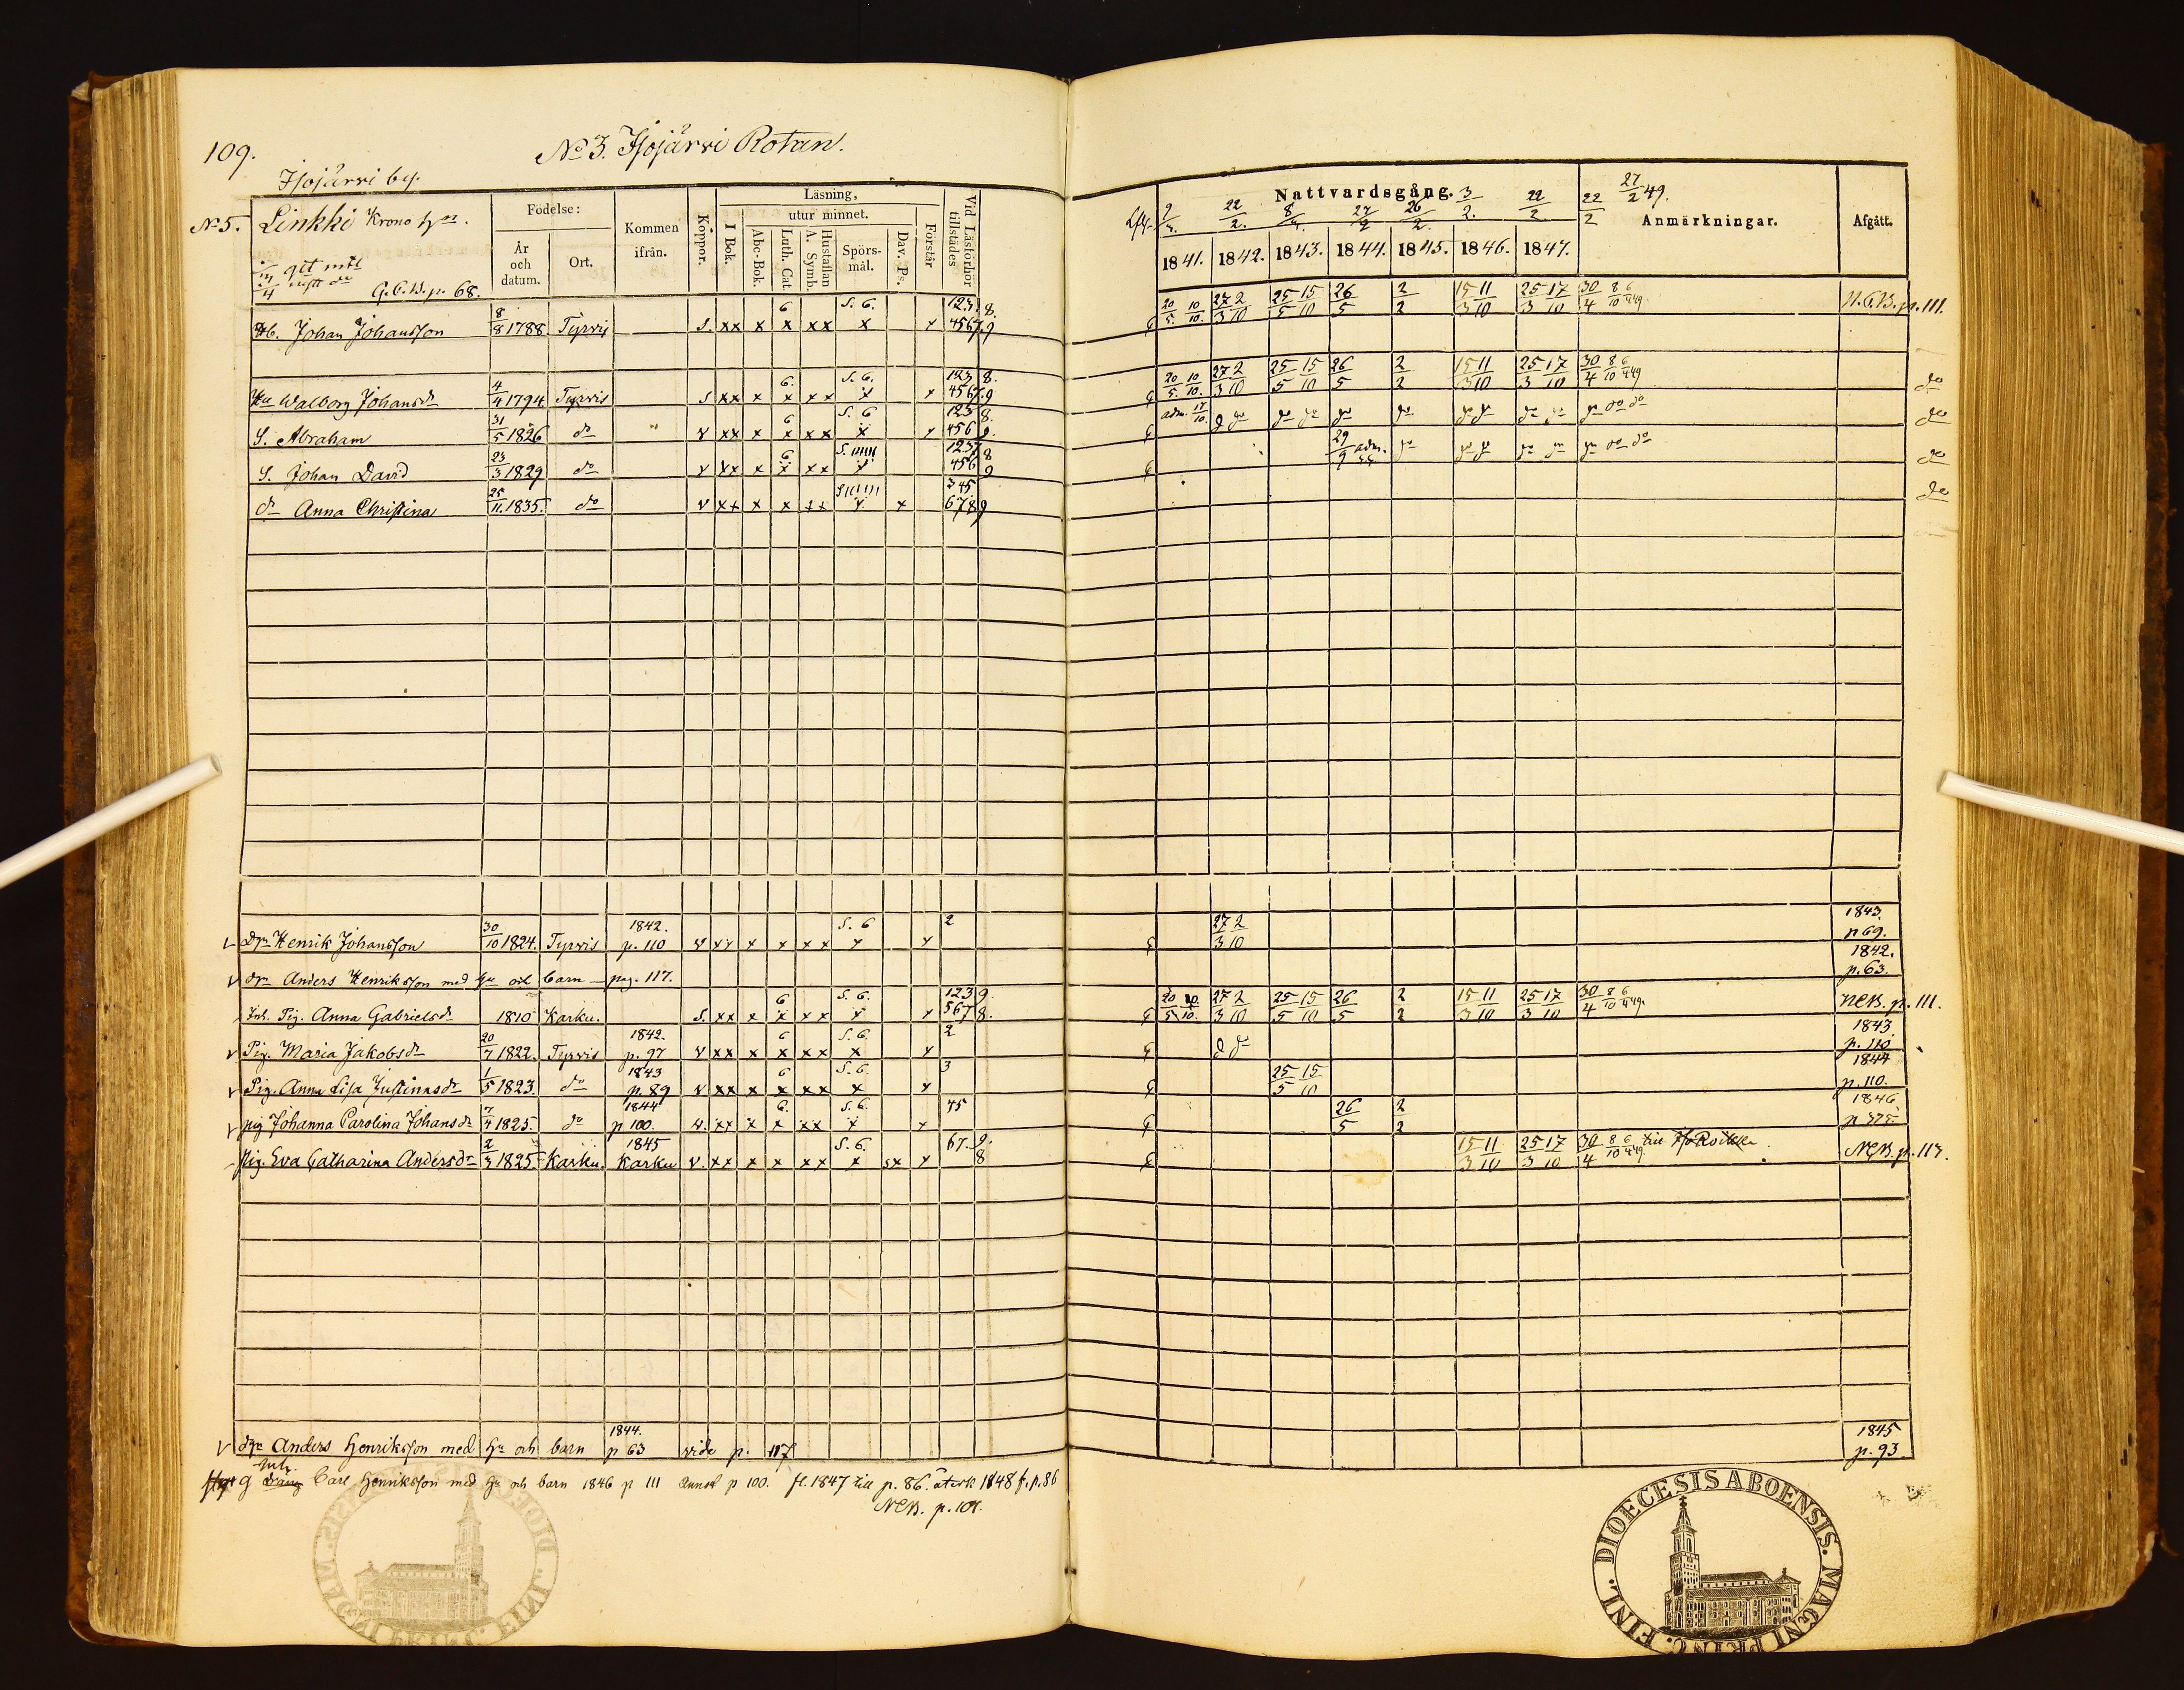 109.
No 3. Isojärvi Rotan.
Isojärvi by.
No 5. Linkki Krono hn.
G.C.B. p. 68.
Födelse:
År och datum.
Ort.
Kommen ifrån.
Koppor.
Läsning,
I Bok.
utur minnet.
Abc-Bok.
Luth. Cat.
Hustaflan A. Symb.
Spörs-mål.
Dav. Ps.
Förstår
Vid Läsförhör tillstädes
Nattvardsgång.
1841. 1842. 1843. 1844. 1845. 1846. 1847.
22/2 27/2 49.
Anmärkningar.
Afgått.
Johan Johansson 8/8 1788 Tyrvis S. xx x 6 x xx S. 6. x x 123 4567 8. 9 20/5. 10/10. 27/3 2/10 25/5 15/10 26/5 2/2 15/3 11/10 25/3 17/10 30/4 8/10 6/4 49 N.C.B. p. 111.
Hu Walborg Johansdr 4/4 1794 Tyrvis S xx x 6. x xx S. 6. x x 123 4567 8. 9 20/5. 10/10. 27/3 2/10 25/5 15/10 26/5 2/2 15/3 11/10 25/3 17/10 30/4 8/10 6/4 49 do
S. Abraham 31/5 1826 do v xx x 6 x xx S. 6 x x 123 456 8. 9. adm. 17/10. do do do do do do do do do do do do do
S. Johan David 23/3 1829 do v xx x 6 x xx x 1237 456 8 9 29/9 adm. 44 do do do do do do do do do
dr Anna Christina 25/11. 1835. do v xx x x xx x x 345 678 9 do
Dr. Henrik Johansson 30/10 1824. Tyrvis 1842. p. 110 v xx x x xx S. 6 x x 2 27/3 2/10 1843. p 69.
Dr. Anders Henriksson med hu och barn pag. 117. 1842. p. 63.
Inh. Pig. Anna Gabrielsdr 1810 Karku. S. xx x 6 x xx S. 6. x x 123 567 9. 8. 20/5 10/10. 27/3 2/10 25/5 15/10 26/5 2/2 15/3 11/10 25/3 17/10 30/4 8/10 6/4 49. NCB. p. 111.
Pig. Maria Jakobsdr 20/7 1822. Tyrvis 1842. p. 97 v xx x 6 x xx S. 6. x x 2 do do 1843. p. 110
Pig. Anna Lisa Justinasdr 1/5 1823. do 1843 p. 89 v xx x 6 x xx S. 6. x x 3 25/5 15/10 1844 p. 110.
pig Johanna Carolina Johansdr 7/4 1825. do 1844 p 100. v. xx x 6. x xx S. 6. x x 45 26/5 2/2 1846
pig. Eva Catharina Andersdr 2/3 1825 Karku. 1845 Karku v. xx x x xx S. 6. x sx x 67. 9. 8 15/3 11/10 25/3 17/10 30/4 8/10 6/4 49 NCB. p. 117.
Dr. Anders Henriksson med hu och barn 1844. p 63 vide p. 117 1845 p. 93
Inh.
Carl Henriksson med hu och barn 1846 p 111 p 100. fl. 1847 till p. 86. återk 1848 f. p. 86
NCB. p. 101.
DIOECESIS ABOENSIS. MAGNI PRINC. FINL.